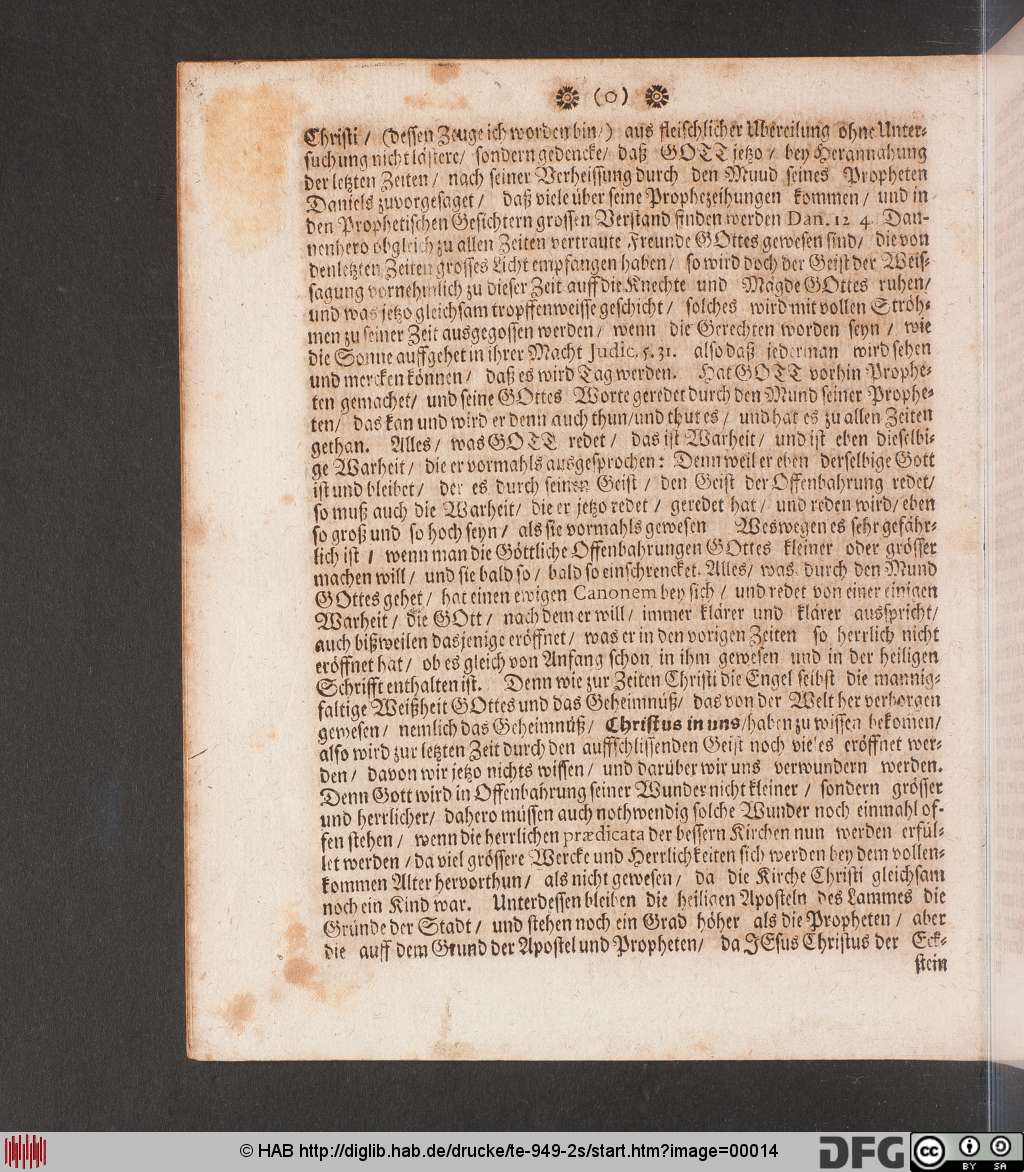 (o)
Christi / (dessen Zeuge ich worden bin /) aus fleischlicher Ubereilung ohne Unter-
suchung nicht lästere / sondern gedencke / daß GOTT jetzo / bey Herannahung
der letzten Zeiten / nach seiner Verheissung durch den Muud seines Propheten
Daniels zuvorgesaget / daß viele über seine Prophezeihungen kommen / und in
den Prophetischen Gesichtern grossen Verstand finden werden Dan. 12 4. Dan-
nenhero obgleich zu allen Zeiten vertraute Freunde GOttes gewesen sind / die von
denletzten Zeiten grosses Licht empfangen haben / so wird doch der Geist der Weis-
sagung vornehmlich zu dieser Zeit auff die Knechte und Mägde GOttes ruhen /
und was jetzo gleichsam tropffenweisse geschicht / solches wird mit vollen Ströh-
men zu seiner Zeit ausgegossen werden / wenn die Gerechten worden seyn / wie
die Sonne auffgehet in ihrer Macht Judic. 5. 31. also daß jederman wird sehen
und mercken können / daß es wird Tag werden. Hat GOTT vorhin Prophe-
ten gemachet / und seine GOttes Worte geredet durch den Mund seiner Prophe-
ten / das kan und wird er denn auch thun / und thut es / und hat es zu allen Zeiten
gethan. Alles / was GOTT redet / das ist Warheit / und ist eben dieselbi-
ge Warheit / die er vormahls ausgesprochen: Denn weil er eben derselbige Gott
ist und bleibet / der es durch seinen Geist / den Geist der Offenbahrung redet /
so muß auch die Warheit / die er jetzo redet / geredet hat / und reden wird / eben
so groß und so hoch seyn / als sie vormahls gewesen Weswegen es sehr gefähr-
lich ist / wenn man die Göttliche Offenbahrungen GOttes kleiner oder grösser
machen will / und sie bald so / bald so einschrencket. Alles / was durch den Mund
GOttes gehet / hat einen ewigen Canonem bey sich / und redet von einer einigen
Warheit / die GOtt / nach dem er will / immer klärer und klärer ausspricht /
auch bißweilen dasjenige eröffnet / was er in den vorigen Zeiten so herrlich nicht
eröffnet hat / ob es gleich von Anfang schon in ihm gewesen und in der heiligen
Schrifft enthalten ist. Denn wie zur Zeiten Christi die Engel selbst die mannig-
faltige Weißheit GOttes und das Geheimnüß / das von der Welt her verborgen
gewesen / nemlich das Geheimnüß / Christus in uns / haben zu wissen bekomen /
also wird zur letzten Zeit durch den auffschlissenden Geist noch vieles eröffnet wer-
den / davon wir jetzo nichts wissen / und darüber wir uns verwundern werden.
Denn Gott wird in Offenbahrung seiner Wunder nicht kleiner / sondern grösser
und herrlicher / dahero müssen auch nothwendig solche Wunder noch einmahl of-
fen stehen / wenn die herrlichen prædicata der bessern Kirchen nun werden erfül-
let werden / da viel grössere Wercke und Herrlichkeiten sich werden bey dem vollen-
kommen Alter hervorthun / als nicht gewesen / da die Kirche Christi gleichsam
noch ein Kind war. Unterdessen bleiben die heiligen Aposteln des Lammes die
Gründe der Stadt / und stehen noch ein Grad höher als die Propheten / aber
die auff dem Grund der Apostel und Propheten / da JEsus Christus der Eck-
stein
© HAB http://diglib.hab.de/drucke/te-949-2s/start.htm?image=00014
DFG
cc BY SA